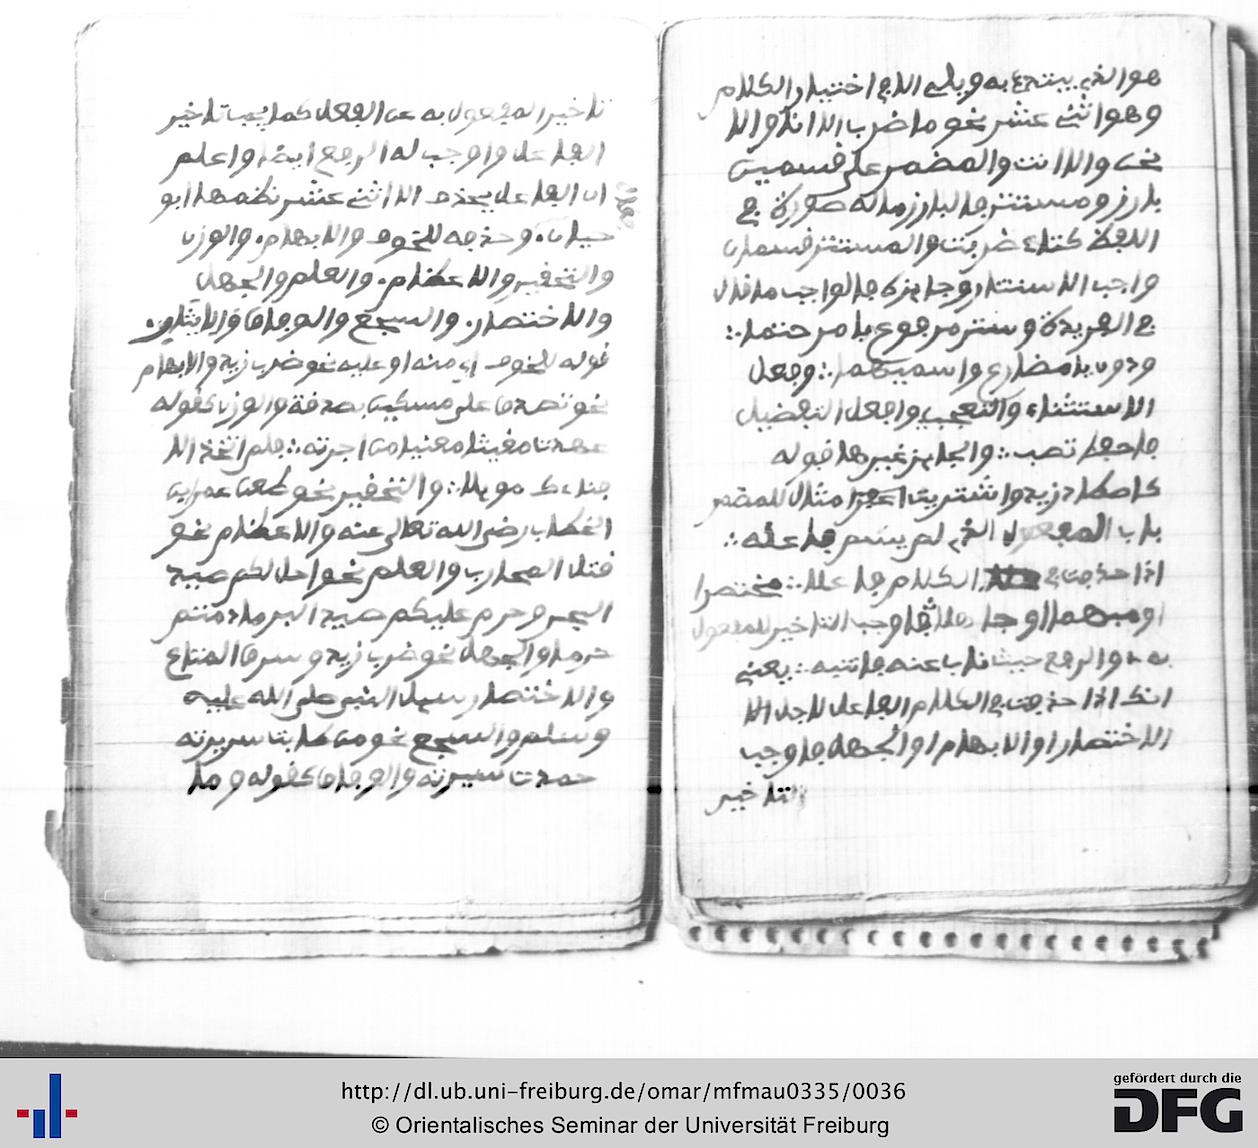 هو الذي يبتدئ به ويلي الا في اختيار الكلام
وهو اثني عشر نحو ما ضرب الا انا والا
نحن والا انت والمضمر على قسمين
بارز ومستتر فالبارز ماله صورة في
اللفظ كتاء ضربت والمستتر قسمان
واجب الاستتار وجائزه فالواجب ما قال
في الفريدة وستر مرفوع بامر حتما ∴
ودون يا مضارع واسميهما ∴ وفعل
الاستثناء والتعجب وافعل التفضيل
فاحفظ تصب ∴ والجايز غيرها قوله
كاصطاد زيد واشتريت اعفرا مثال للمضمر
باب المفعول الذي لم يسم فاعله ∴
اذا حذفت في الكلام فاعلا ∴ مختصرا
او مبهما او جاهلا فاوجب التاخير للمفعول
به والرفع حيث ناب عنه فانتبه ∴ يعني
انك اذا حذفت في الكلام الفاعل لاجل الا
الاختصار او الابهام او الجهل فاوجب
التاخير
تاخير المفعول به عن الفعل كما يجب تاخير
الفاعل واوجب له الرفع ايضا واعلم
ان الفاعل يحذف الا اثني عشر نظمها ابو
حيان وحذفه للخوف والابهام والوزن
والتحقير والاعظام والعلم والجهل
والاختصار والسجع والوفاق والايثار
قوله للخوف اي منه او عليه نحو ضرب زيد والابهام
نحو تصدق على مسكين بصدقة والوزن كقوله
عهدت مغيثا مغنيا من اجرته ∴ فلم اتخذ الا
فناءك مويلا ∴ والتحقير نحو طعن عمر ابن
الخطاب رضي الله تعالى عنه والاعظام نحو
قتل المحارب والعلم نحو احل لكم صيد
البحر وحرم عليكم صيد البر ما دمتم
حرما والجهل نحو ضرب زيد وسرق المتاع
والاختصار سيل النبي صلى الله عليه
وسلم والسجع نحو من طابت سريرته
حمدت سيرته والوفاق كقوله وما
http://dl.ub.uni-freiburg.de/omar/mfmau0335/0036
© Orientalisches Seminar der Universität Freiburg
gefördert durch die
DFG